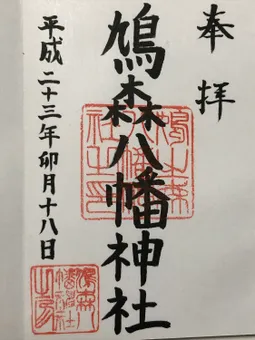 奉拝
鳩森八幡神社
平成二十三年卯月十八日